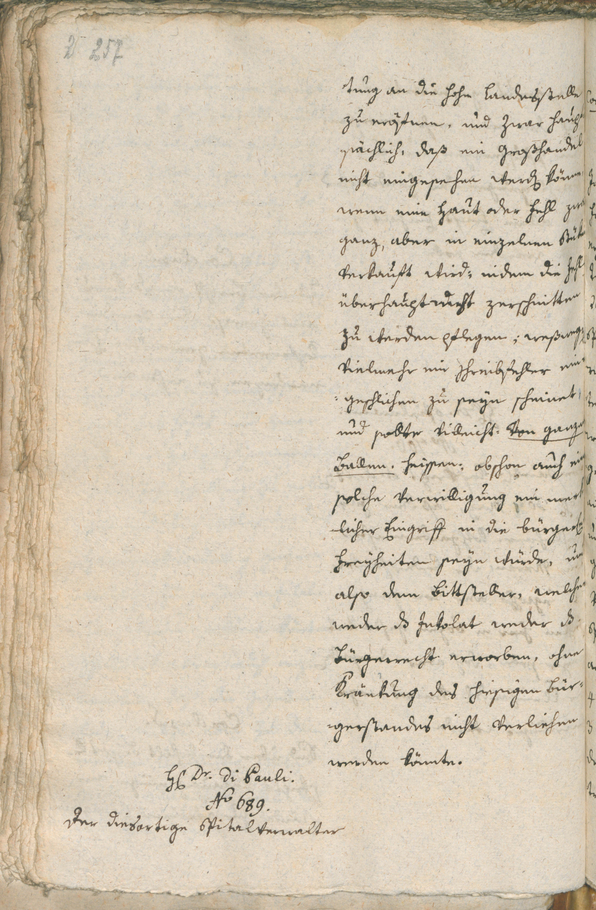 257
tung an die hohe Landesstelle
zu eröfnen, und zwar haupt
sächlich, daß ein Großhandel
nicht eingesehen werden könne
wenn eine Haut oder Fehl zwar
ganz, aber in einzelnen Stük
verkauft wird: indem die Fehl
überhaupt nicht zerschnitten
zu werden pflegen; weßwegen
vielmehr ein Schreibfehler ein
geschlichen zu seyn scheinet,
und sollte villeicht: Von ganzen
Ballen, heissen: obschon auch ein
solche Verwilligung ein merk
licher Eingriff in die bürgerl
Freyheiten seyn würde, und
also dem Bittsteller, welcher
weder das Inkolat weder das
Bürgerrecht erworben, ohne
Kränkung des hiesigen Bür-
gerstandes nicht verliehen
werden könnte.
H Dr. Di Pauli.
No 689.
Der diesortige Spitalverwalter